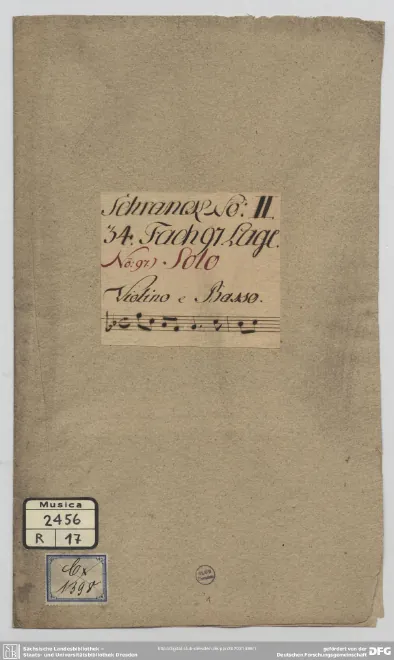 Schranck No: II.
34. Fach 97. Lage.
No: 97) Solo
Violino e Basso.
Musica
2456
R 17
Cx
1398
Sächsische Landesbibliothek –
Staats- und Universitätsbibliothek Dresden
gefördert von der
Deutschen Forschungsgemeinschaft
DFG